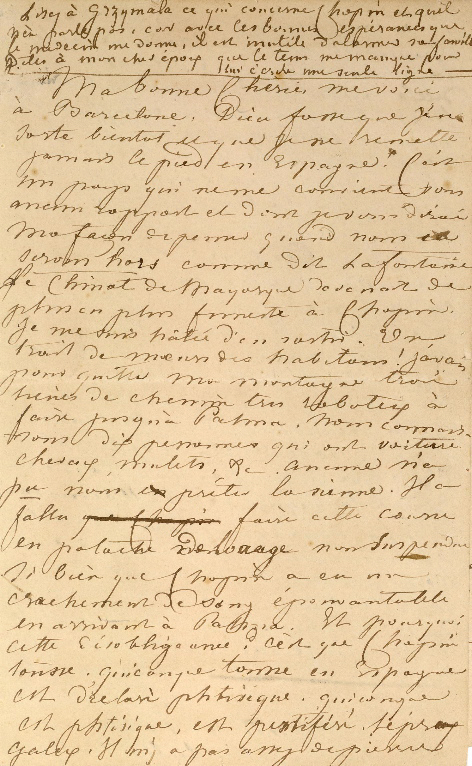 Lisez à Grzymala ce qui concerne Chopin et qu'il
n'en parle pas, car avec les bonnes espérances que
le médecin me donne, il est inutile d'alarmer sa famille
Dites à mon cher époux que le tems me manque pour
lui écrire une seule ligne
Ma bonne Chérie, me voici
à Barcelone. Dieu fasse que j'en
sorte bientôt et que je ne remette
jamais le pied en Espagne! C'est
un pays qui ne me convient sous
aucun rapport et dont je vous dirai
ma façon de penser quand nous en
serons hors comme dit Lafontaine
Le Climat de Mayorque devenait de
plus en plus funeste à Chopin.
Je me suis hâtée d'en sortir. Un
trait de mœurs des habitans! j'avais
pour quitter ma montagne trois
lieues de chemin très raboteux à
faire jusqu'à Palma. Nous connais-
sons dix personnes qui ont voiture
chevaux, mulets, &c aucune n'a
pu nous prêter la sienne. Il a
fallu que Chopin faire cette course
en patache de louage non suspendue
si bien que Chopin a eu un
crachement de sang épouvantable
en arrivant à Palma. Et pourquoi
cette désobligeance? c'est que Chopin
tousse, quiconque tousse en Espagne
est déclaré phtisique, quiconque
est phtisique, est pestiféré, lépreux
galeux. Il n'y a pas assez de pierres